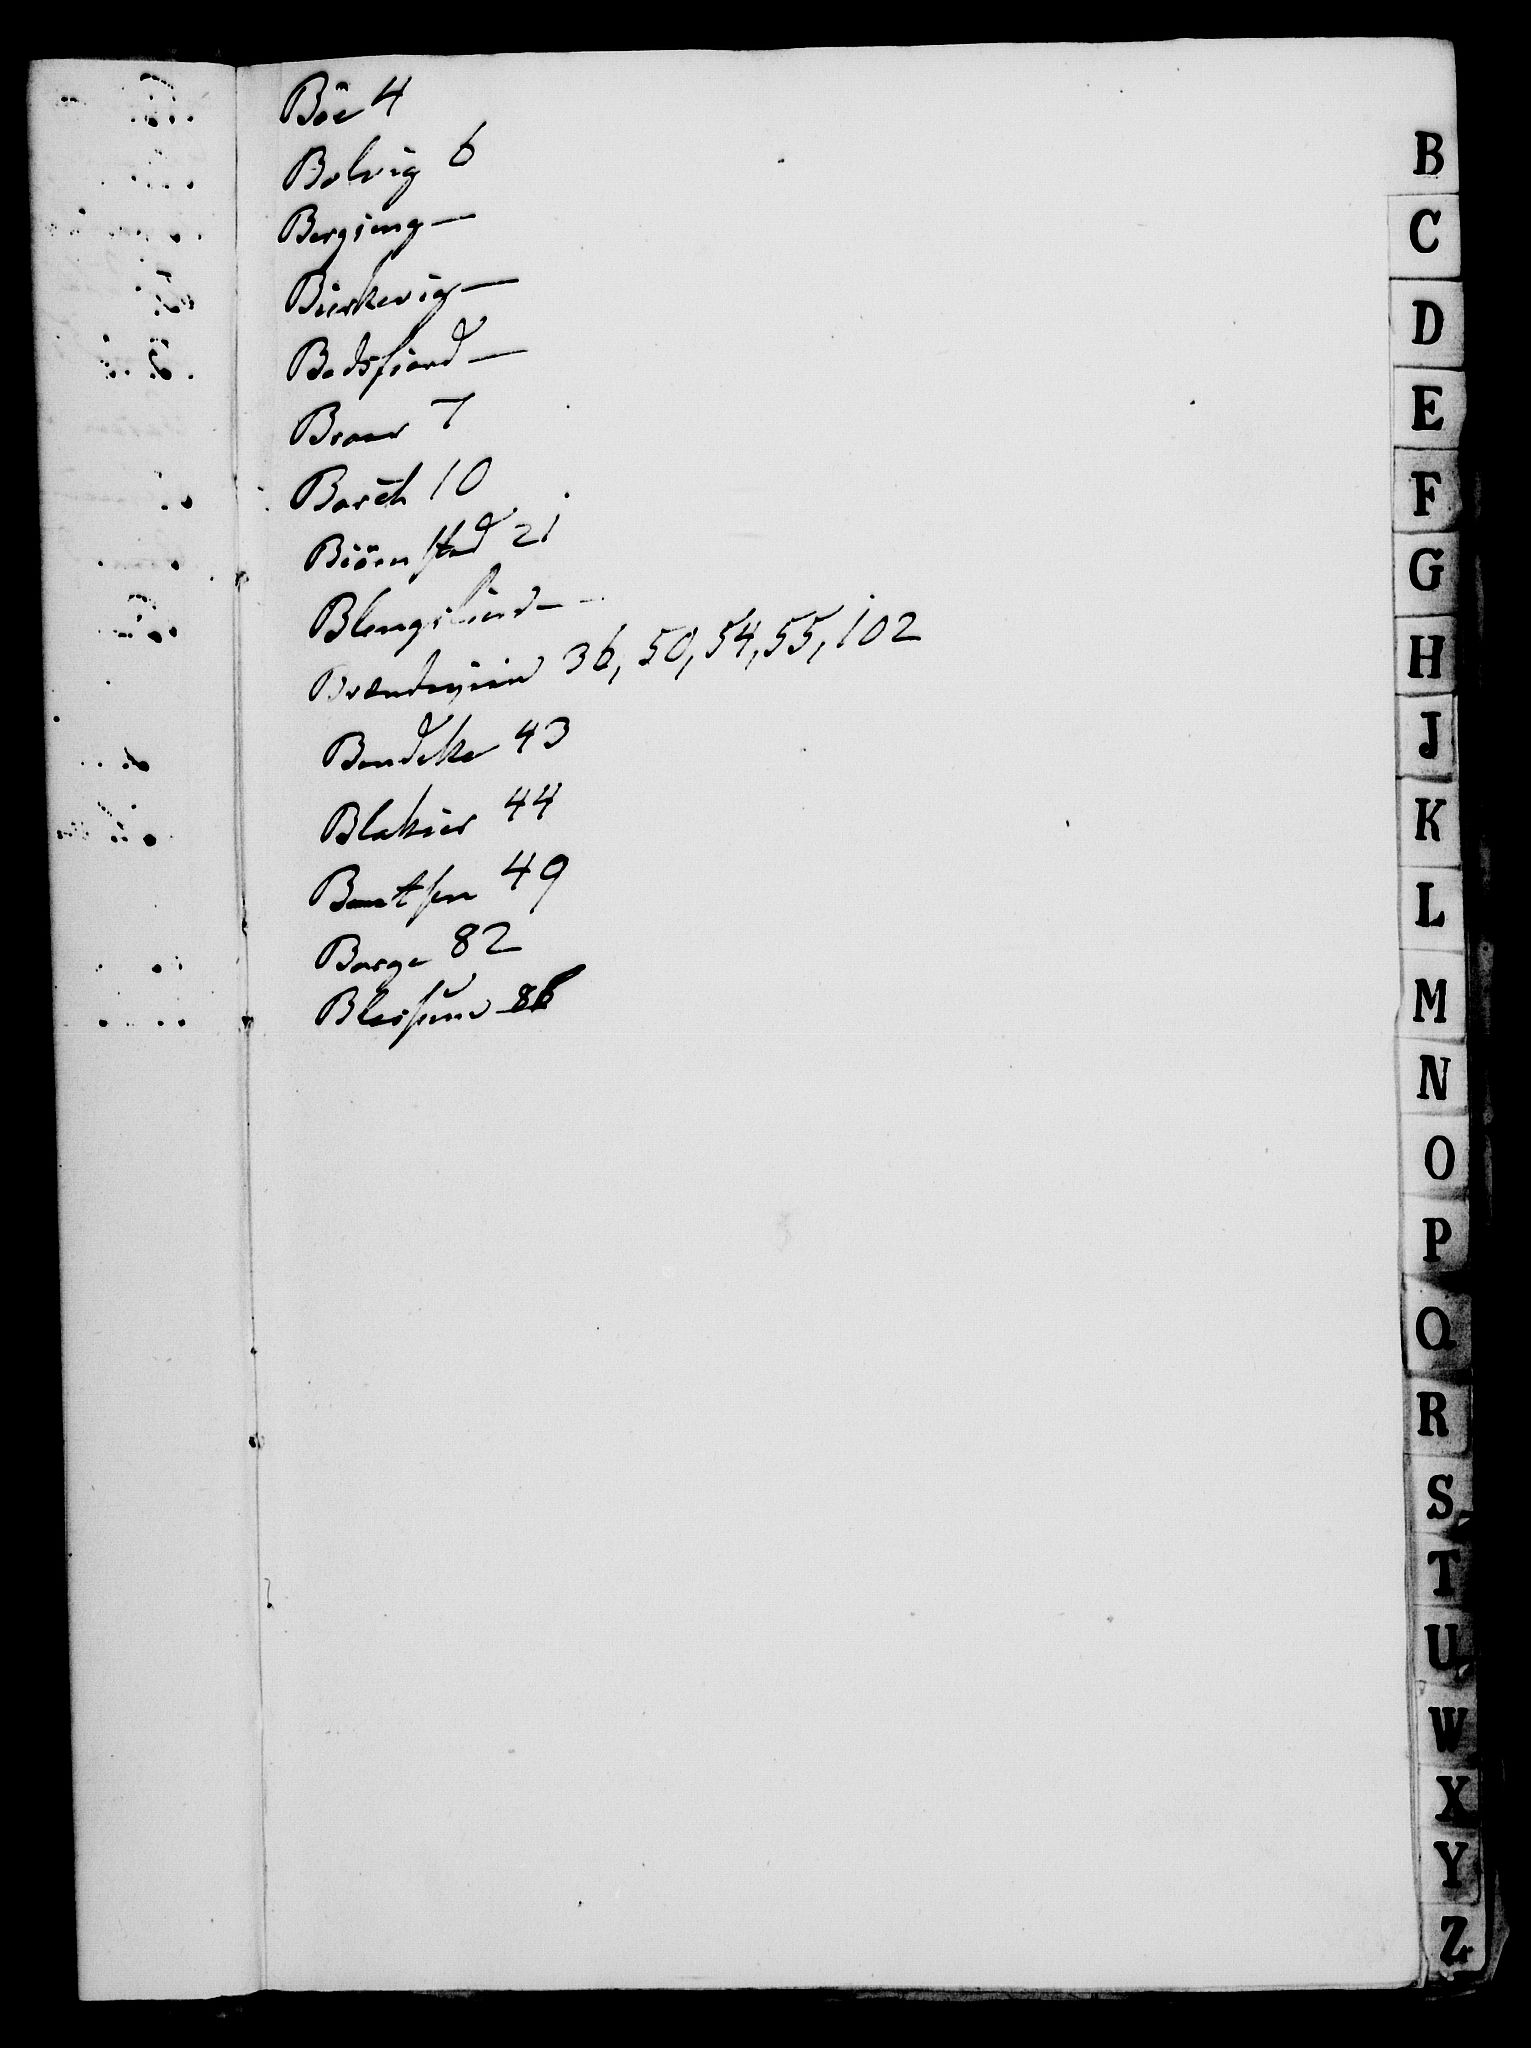 Böe 4
Bolvig 6
Bergseng —
Birkevig —
Badsfiord —
Braar 7
Barth 10
Biörnstad 21
Blengsliend —
Brændegiein 36, 50, 54, 55, 102
Bendeke 43
Blakier 44
Bentsen 49
Borge 82
Blessund 86
B
C
D
E
F
G
H
J
K
L
M
N
O
P
Q
R
S
T
U
W
X
Y
Z